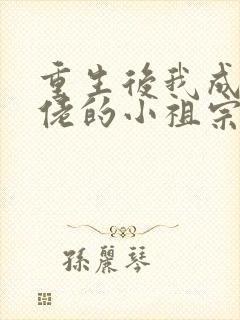 重生後我成
佬的小祖宗
孫麗琴